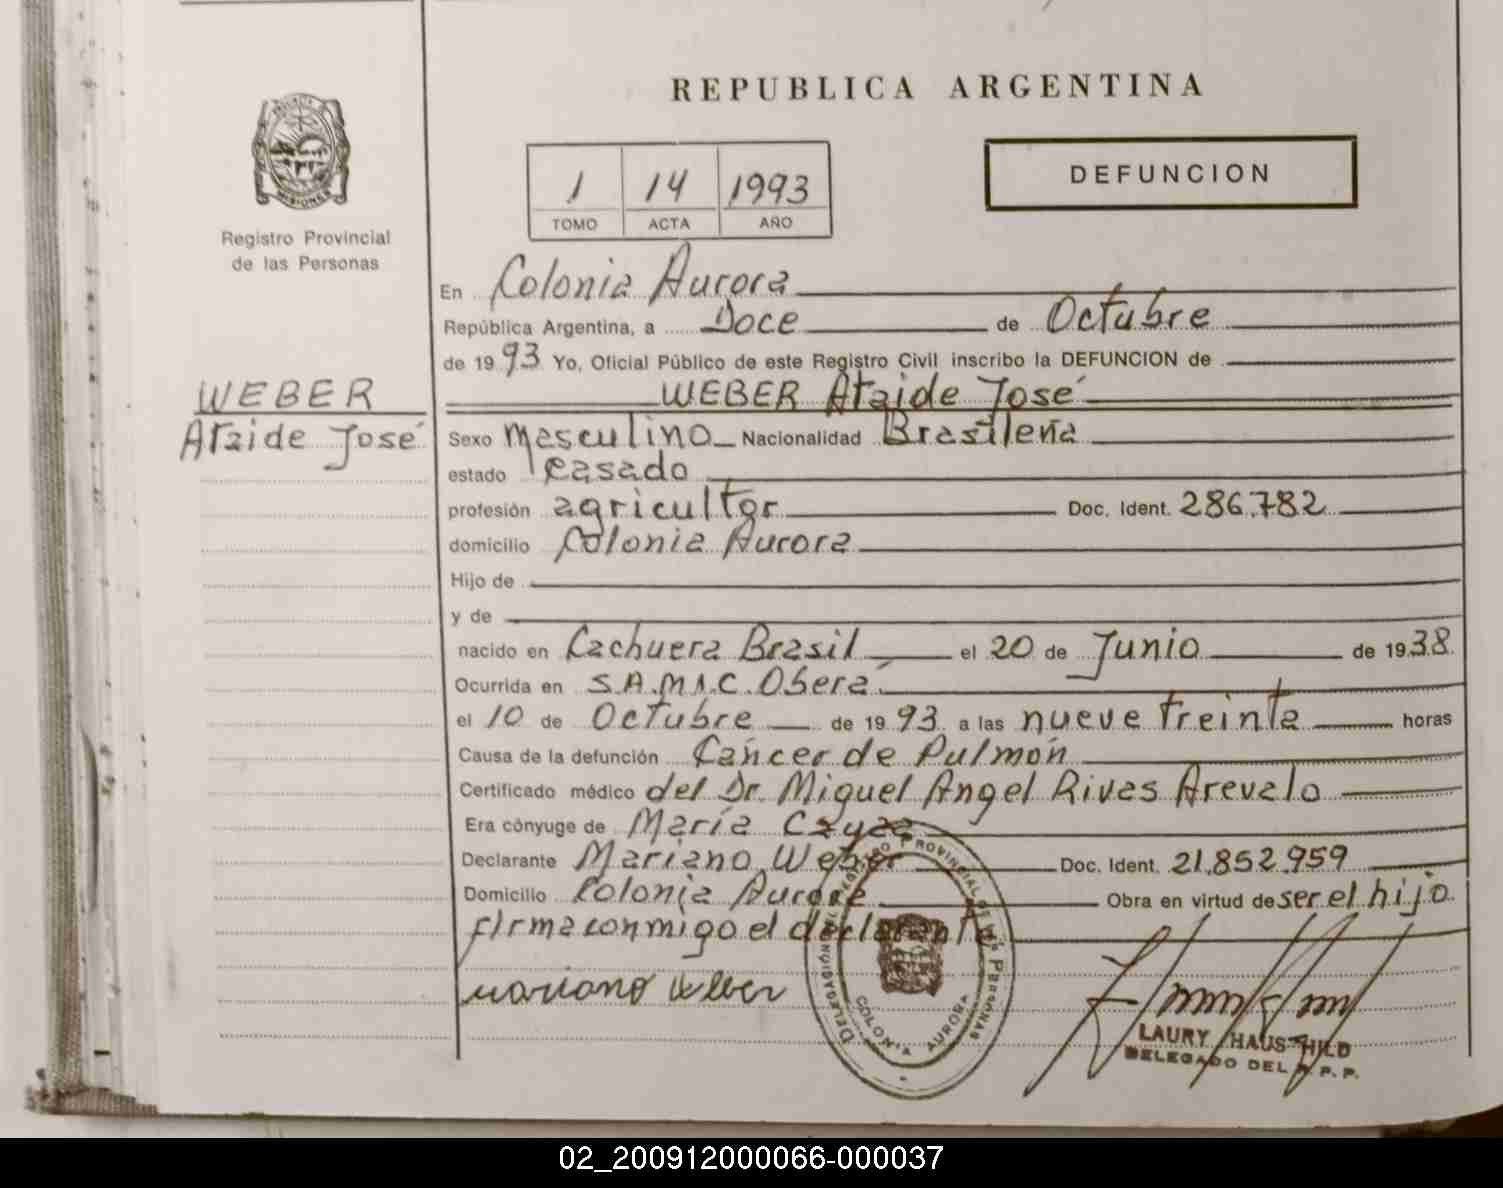 REPUBLICA ARGENTINA
MISIONES
Registro Provincial
de las Personas
1 14 1993
TOMO ACTA AÑO
DEFUNCION
WEBER
Ataide José
En Colonia Aurora
República Argentina, a Doce de Octubre
de 1993 Yo, Oficial Público de este Registro Civil inscribo la DEFUNCION de
WEBER Ataide José
Sexo masculino Nacionalidad Brasileña
estado casado
profesión agricultor Doc. Ident. 286.782
domicilio Colonia Aurora
Hijo de
y de
nacido en Cachuera Brasil el 20 de Junio de 1938
Ocurrida en S.A.M.I.C. Oberá
el 10 de Octubre de 1993 a las nueve treinta horas
Causa de la defunción Cáncer de Pulmón
Certificado médico del Dr. Miguel Angel Rivas Arevalo
Era cónyuge de María
Declarante Mariano Weber Doc. Ident. 21.852.959
Domicilio Colonia Aurora Obra en virtud de ser el hijo
firma conmigo el declarante
Mariano Weber
REGISTRO PROVINCIAL DE LAS PERSONAS
COLONIA AURORA
LAURY HAUSTHILD
DELEGADO DEL R. P. P.
02_200912000066-000037